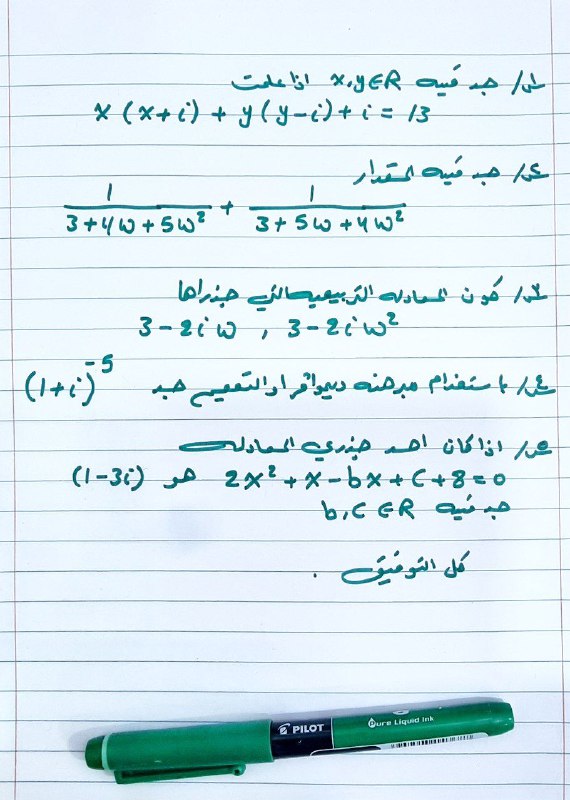 س1/ جد قيمة x,y∈R اذا علمت
x (x+i) + y(y-i) + i = 13
س2/ جد قيمة المقدار
1/(3+4ω+5ω²) + 1/(3+5ω+4ω²)
س3/ كون المعادله التربيعيه التي جذراها
3-2iω , 3-2iω²
س4/ باستخدام مبرهنه ديموافر او التعميم جد (1+i)⁻⁵
س5/ اذا كان احد جذري المعادله
2x² + x - bx + c + 8 = 0 هو (1-3i)
جد قيمة b,c ∈R
كل التوفيق .
PILOT
Pure Liquid Ink